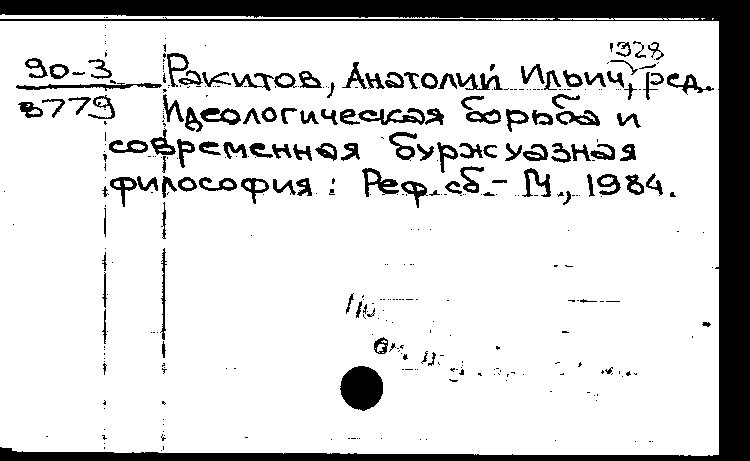 1928
90-3 Ракитов, Анатолий Ильич, ред.
3779 Идеологическая борьба и
современная буржуазная
философия : Реф. сб. - М., 1984.